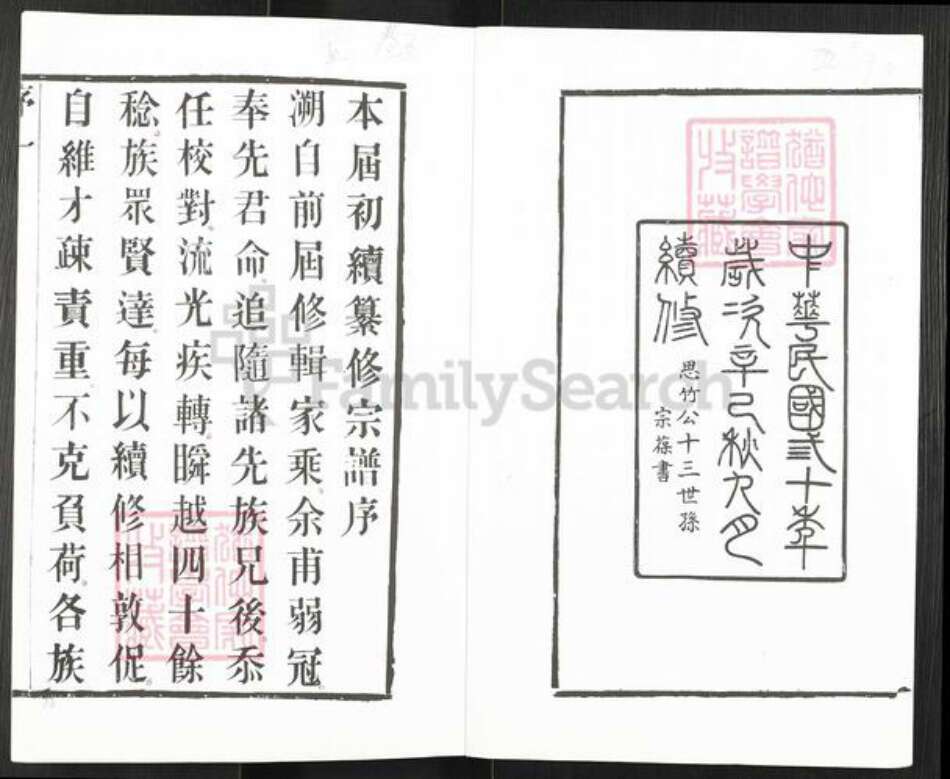 中華民國弍十年
歲次辛巳秋九月
續修
思竹公十三世孫
宗葆書
本屆初續纂修宗譜序
溯自前屆修輯家乘余甫弱冠
奉先君命追隨諸先族兄後忝
任校對流光疾轉瞬越四十餘
稔族眾賢達每以續修相敦促
自維才疎責重不克負荷各族
序 一
FamilySearch